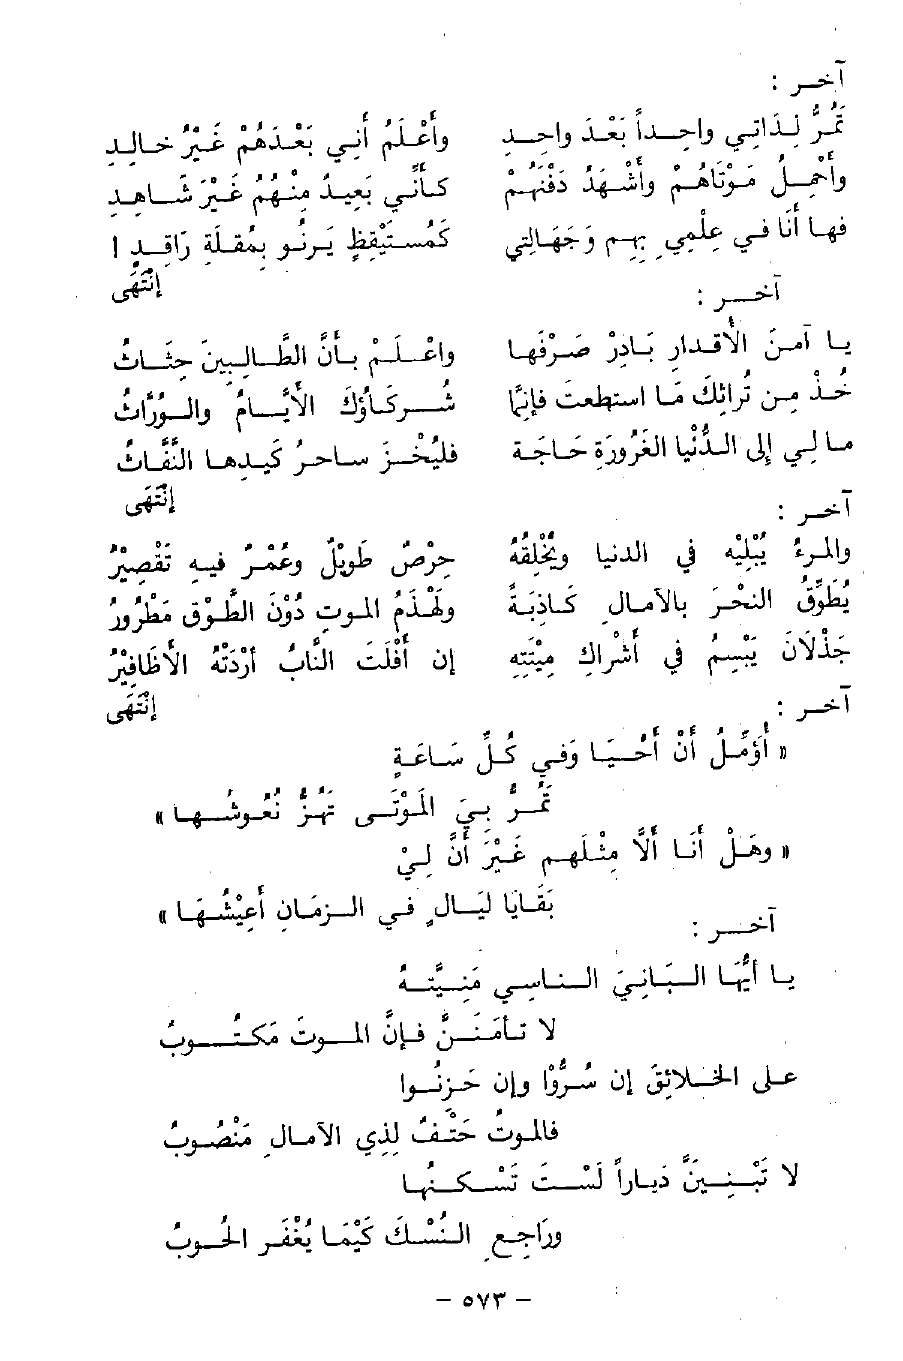 آخر :
تَمُرُّ لِدَاتي واحِداً بَعْدَ واحِدٍ وأَعْلَمُ أَنِي بَعْدَهُمْ غَيْرُ خالِدِ
وأَحْمِلُ مَوْتَاهُمْ وأَشْهَدُ دَفْنَهُمْ كأَنِّي بَعِيدٌ مِنْهُمُ غَيْرُ شَاهِدِ
فها أنَا في عِلْمِي بِهِم وَجَهَالتِي كَمُسْتَيْقِظٍ يَرنُو بِمُقلَةِ رَاقِدِ !
إنْتَهَى
آخر :
يا آمنَ الأقدارِ بَادِرْ صَرْفَها واعْلَمْ بأَنَّ الطَّالِبينَ حِثَاثُ
خُذْ مِن تُراثِكَ مَا استطعتَ فإنَّما شُركَاؤُكَ الأيَّامُ والوُرَّاثُ
ما لِي إلى الدُّنْيا الغَرُورَةِ حَاجَة فليُخْزَ ساحرُ كَيدِها النَّفَّاثُ
إنْتَهَى
آخر :
والمرءُ يُبْلِيْهِ في الدنيا ويُخْلِقُهُ حِرْصٌ طَوِيْلٌ وعُمْرٌ فيهِ تَقْصِيْرُ
يُطَوِّقُ النحْرَ بالآمالِ كَاذبَةً ولَهْذَمُ الموتِ دُوْنَ الطَّوْقِ مَطْرُورُ
جَذْلَانَ يَبْسِمُ في أَشْراكِ مِيْتَتِهِ إن أَفْلَتَ النَّابُ أَرْدَتْهُ الأظَافِيْرُ
إنْتَهَى
آخر :
« أُؤَمِّلُ أَنْ أَحْيَا وَفي كُلِّ سَاعَةٍ
تَمُرُّ بيَ المَوْتَى تَهُزُّ نُعُوشُها »
« وهَلْ أَنَا أَلَّا مِثْلَهم غَيْرَ أَنَّ لِيْ
بَقَايا لَيَالٍ في الزمَانِ أَعِيْشُهَا »
آخر :
يا أَيُّهَا البَانِيَ الناسِي مَنِيَّتهُ
لا تأمَنَنَّ فإنَّ الموتَ مَكتُوبُ
على الخلائقِ إن سُرُّوْا وإن حَزِنُوا
فالموتُ حَتْفٌ لِذِي الآمالِ مَنْصُوبُ
لا تَبْنِيَنَّ دَياراً لَسْتَ تَسْكنُها
ورَاجِعِ النُسْكَ كَيْمَا يُغْفَرَ الحُوبُ
- ٥٧٣ -